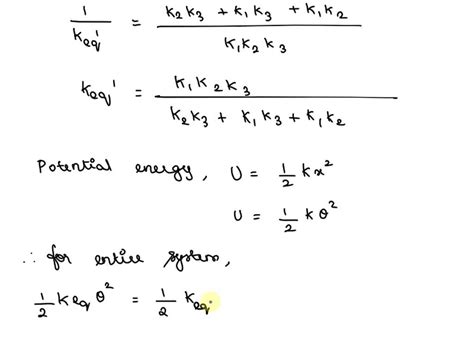 1/K_eq' = (K₂K₃ + K₁K₃ + K₁K₂)/(K₁K₂K₃)
K_eq' = (K₁K₂K₃)/(K₂K₃ + K₁K₃ + K₁K₂)
Potential energy, U = 1/2 kx²
U = 1/2 kθ²
∴ for entire system,
1/2 K_eq θ² = 1/2 K_eq